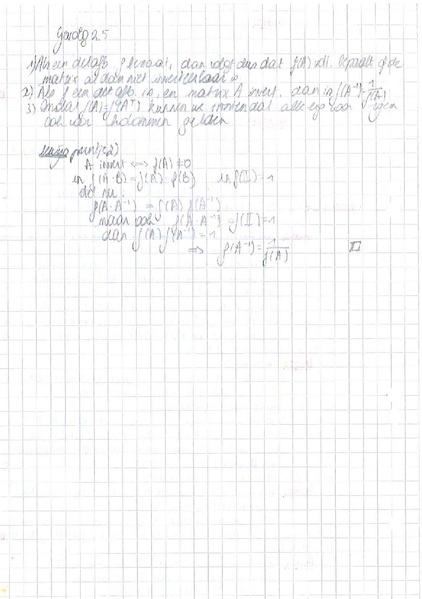 Gevolg 2.5
1) Als een det afb f bestaat, dan volgt dan dat f(A) volledig bepaalt of de
matrix al dan niet inverteerbaar is
2) Als f een det afb. is, en matrix A invert. dan is f(A⁻¹)=1/f(A)
3) Omdat f(A)=f(Aᵀ) kunnen we dat alle eig voor rijen
ook voor kolommen gelden
puntje 2)
A invert ⟺ f(A) ≠ 0
en f(A·B)=f(A)·f(B) en f(𝕀)=1
dit nu:
f(A·A⁻¹) = f(A) f(A⁻¹)
maar ook f(A·A⁻¹)=f(𝕀)=1
dan f(A)·f(A⁻¹)=1
⟹ f(A⁻¹)=1/f(A) □